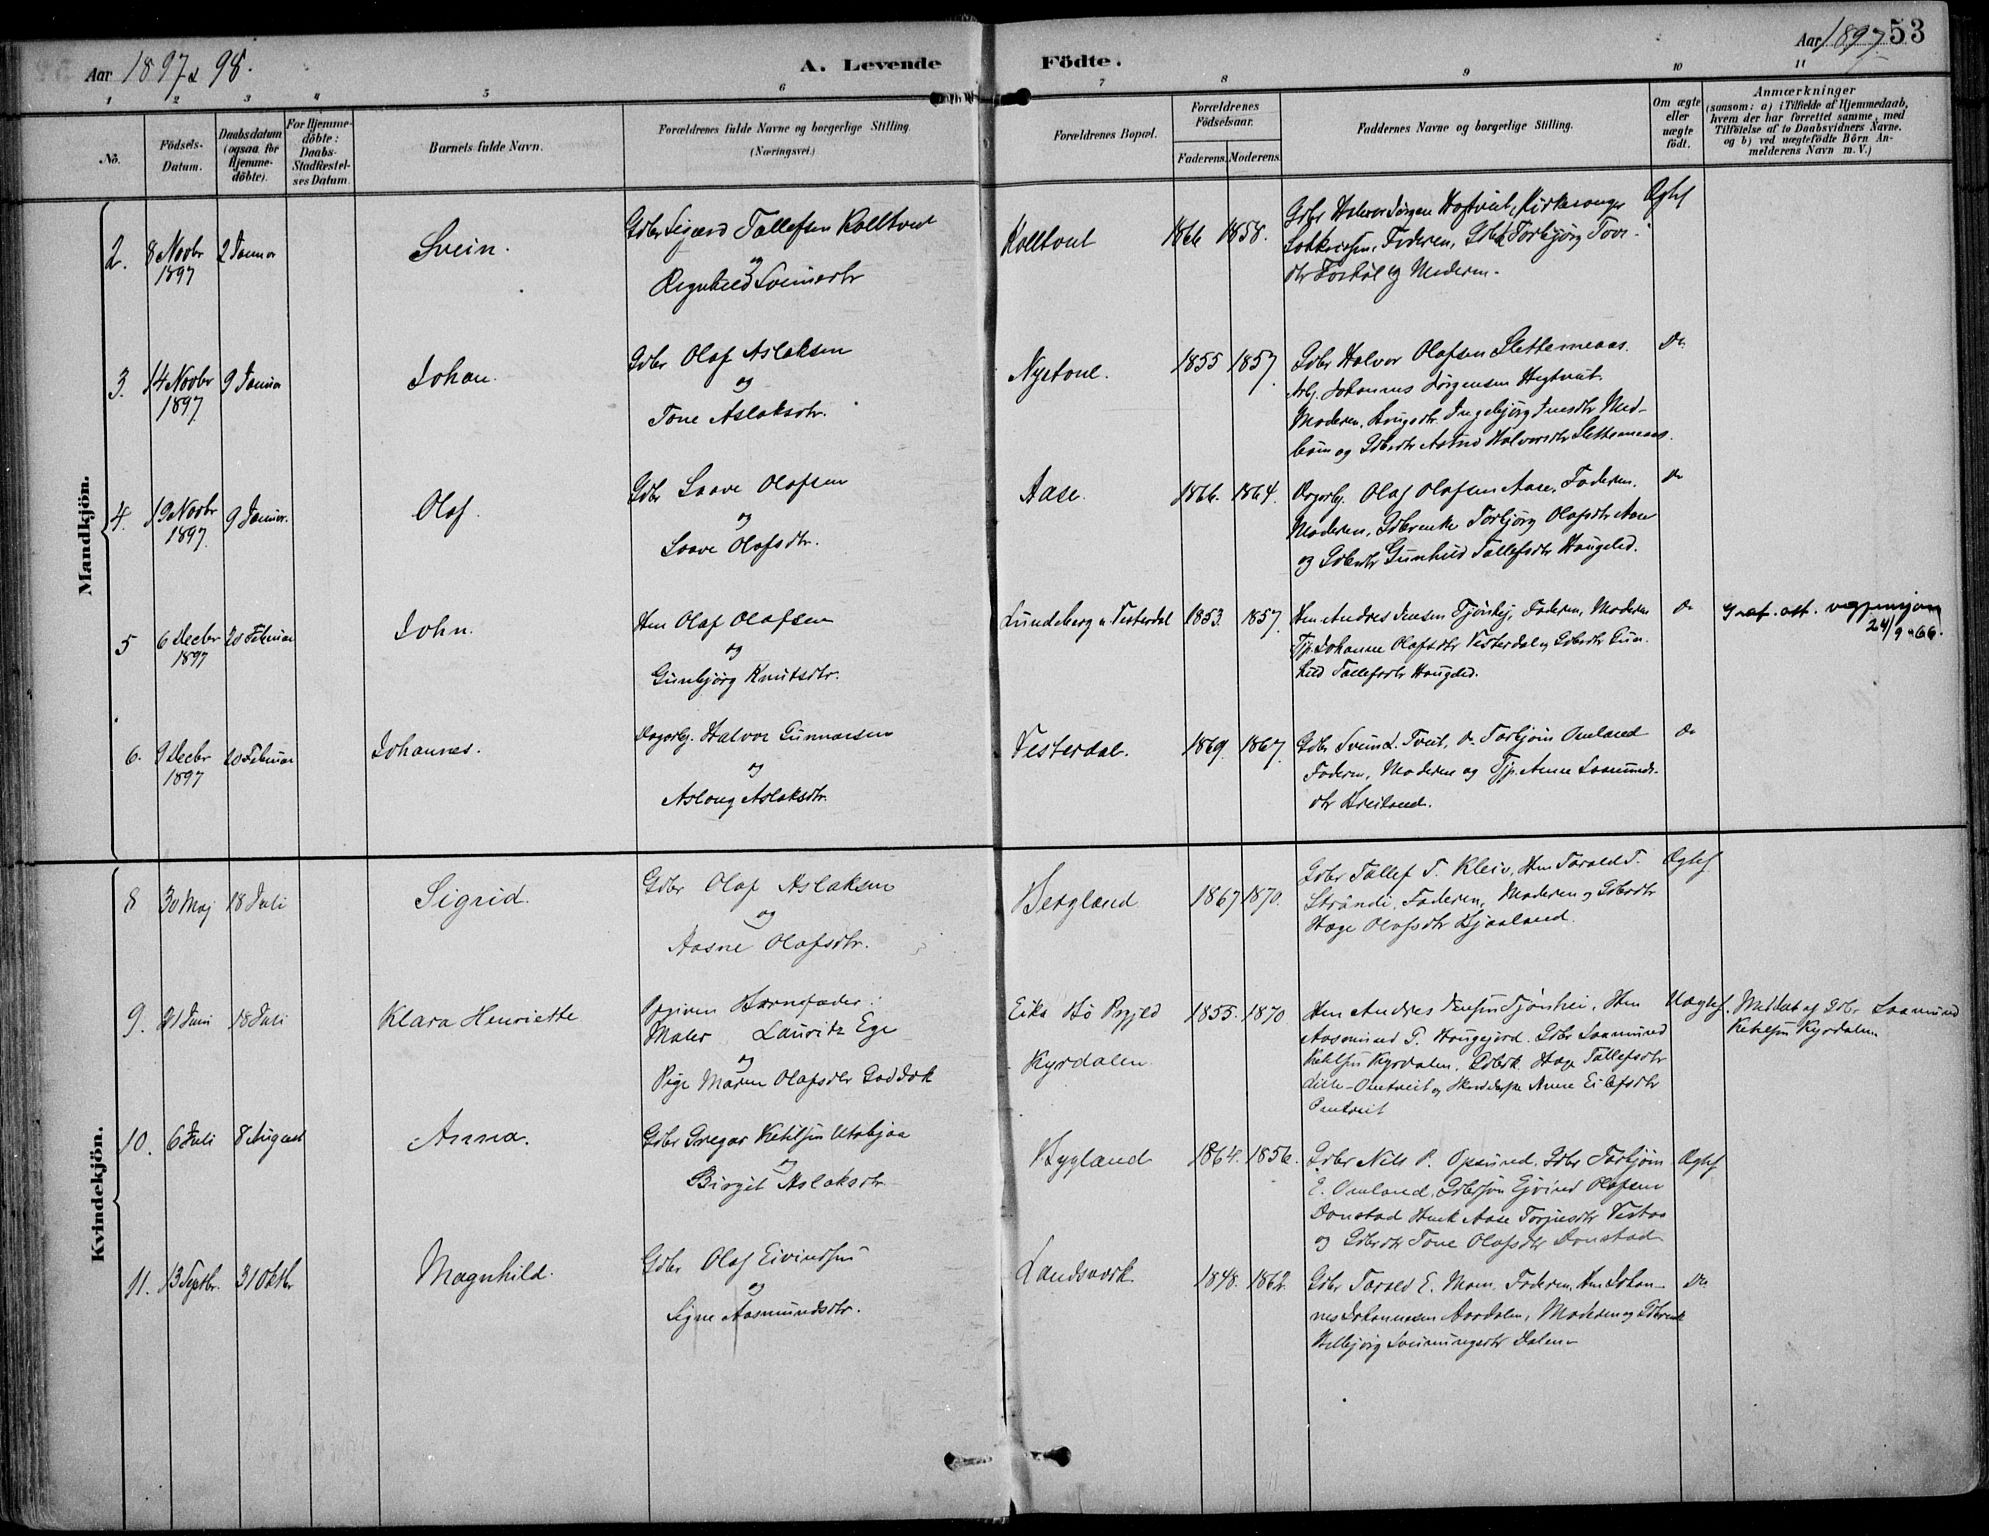 Aar 1897 & 98.
A. Levende Födte.
Aar 1897 53
1 2 3 4 5 6 7 8 9 10 11
No.
Födsels-Datum.
Daabsdatum (ogsaa for Hjemme-döbte).
For Hjemme-döbte: Daabs-Stadfæstel-ses Datum.
Barnets fulde Navn.
Forældrenes fulde Navne og borgerlige Stilling. (Næringsvei.)
Forældrenes Bopæl.
Forældrenes Födselsaar.
Faderens. Moderens.
Faddernes Navne og borgerlige Stilling.
Om ægte eller uægte födt.
Anmærkninger
(saasom: a) i Tilfælde af Hjemmedaab, hvem der har forrettet samme, med Tilföielse af to Daabsvidners Navne. og b) ved uægtefödte Börn Anmelderens Navn m. V.)
Mandkjön.
2. 8 Novbr 1897 2 Januar
Svein.
Gdbr Sigurd Tallefsen Kolltveit
og
Ragnhild Sveinsdtr
1866 1858.
Gdbr Halvor Jørgen Hegtveit, Kirkesanger
Faderen, Torbjørg
og Moderen.
Ægtef
3. 14 Novbr 1897 9 Januar
Johan.
Gdbr Olaf Aslaksen
og
Tone Aslaksdtr.
Nystoul.
1855 1857
Gdbr Halvor Olafsen Slettemeaas.
Arb. Johannes Jørgensen Hegtveit.
Moderen, Ingebjørg
og Halvorsdtr Slettemeaas.
Do
4. 19 Novbr 1897. 9 Januar.
Olaf.
Gdbr Saave Olafsen
og
Saave Olafsdtr.
Aase.
1866. 1864.
Dagarb. Olaf Olafsen Aase, Faderen,
Moderen, Gdbrenke Torbjørg Olafsdtr Aase
og Gdbrdtr Gunhild Tallefsdtr Haugelid.
Do
5 6 Decbr 1897 20 Februar
John.
Hm Olaf Olafsen
og
Gunbjørg Knutsdtr.
Lundeberg u Vesterdal
1853. 1857.
Hm Andres Jensen Tjønhej, Faderen, Moderen
Tjp. Johanne Olafsdtr Vesterdal og Gdbrdtr Gun-
hild Tallefsdtr Haugelid.
Do
24/9-66.
6. 9 Decbr 1897 20 Februar
Johannes.
Dagarb. Halvor Gunnarsen
og
Aslaug Aslaksdtr.
Vesterdal.
1869 1867.
Gdbr Svein L. Tveit, Do Torbjørn Omland
Faderen, Moderen og Tjp. Anne Saamunds-
dtr Hreiland.
Do
Kvindekjön.
8 30 Maj 18 Juli
Sigrid.
Gdbr Olaf Aslaksen
og
Aasne Olafsdtr.
Bergland
1867 1870.
Gdbr Tallef T. Kleiv, Hm Tarald T.
Strandi, Faderen, Moderen og Gdbrdtr
Hæge Olafsdtr Kjaaland.
Ægtef
9. 21 Juni 18 Juli
Klara Henriette
Opgiven Barnefader:
Maler Lauritz Ege
og
Pige Maren Olafsdtr Gaddak
Kyrdalen
1855. 1870
Hm Andres Jensen Tjønhei, Hm
Aasmund T. Haugejord. Gdbr Saamund
Ketilsen Kyrdalen, Gdbrk. Hæge Tallefsdtr
Omtveit og Anne Eilefsdtr
Omtveit
Uægtef. Meddelt af Gdbr Saamund
Ketilsen Kyrdalen
10. 6 Juli 8 August
Anna.
Gdbr Gregar Ketilsen Utabjaa
og
Birgit Aslaksdtr
Bygland
1864. 1856.
Gdbr Nils P. Opsund, Gdbr Torbjørn
E. Omland, Gdbrsøn Ejvind Olafsen
Donstad Aase Torjusdtr
og Gdbrdtr Tone Olafsdtr Donstad
Ægtef
11. 13 Septbr. 31 Oktbr
Magnhild.
Gdbr Olaf Eivindsen
og
Signe Aasmundsdtr.
Landsverk
1848. 1862.
Gdbr Tarald E. Moen, Faderen, Hm Johan-
nes Johannesen Aardalen, Moderen og Gdbrenke
Dalen
Do